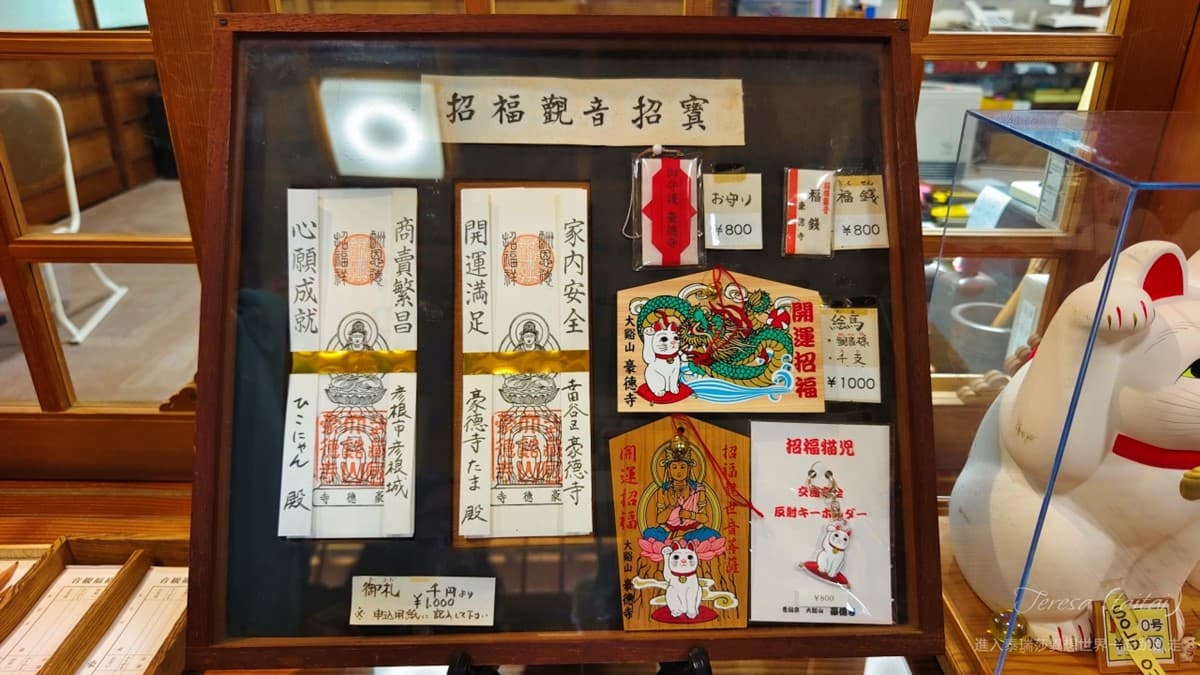 招福觀音招寶
商賣繁昌
心願成就
彦根市彦根城
ひこにゃん 殿
豪徳寺
家内安全
開運満足
世田谷区豪德寺
豪徳寺たま 殿
豪徳寺
御札 千円より
¥1,000
※ 申込用紙に記入して下さい
お守り
¥800
福銭
豪徳寺
ふくせん
福銭
¥800
開運招福
大谿山 豪徳寺
絵馬
・観音様
・干支
¥1000
招福観世音菩薩
開運招福
大谿山 豪徳寺
招福猫児
交通安全
反射キーホルダー
¥800
世田谷 大谿山 豪徳寺
Teresa
進入泰瑞莎夢想世界
SOLD